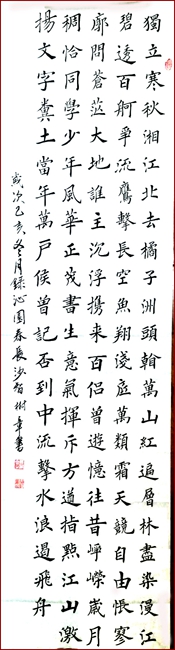 獨立寒秋湘江北去橘子洲頭翰萬山紅遍層林盡染漫江
碧透百舸爭流鷹擊長空魚翔淺底萬類霜天競自由悵寥
廓問蒼茫大地誰主沉浮携来百侣曾遊憶往昔崢嶸歲月
稠恰同學少年風華正茂書生意氣揮斥方遒指點江山激
揚文字糞土當年萬戶侯曾記否到中流擊水浪遏飛舟
歲次己亥冬月錄沁園春長沙樹章書